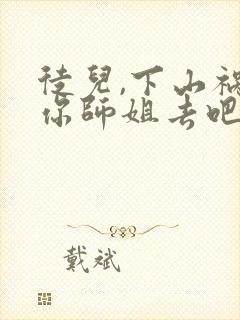 徒兒,下山禍
你師姐去吧
戴斌